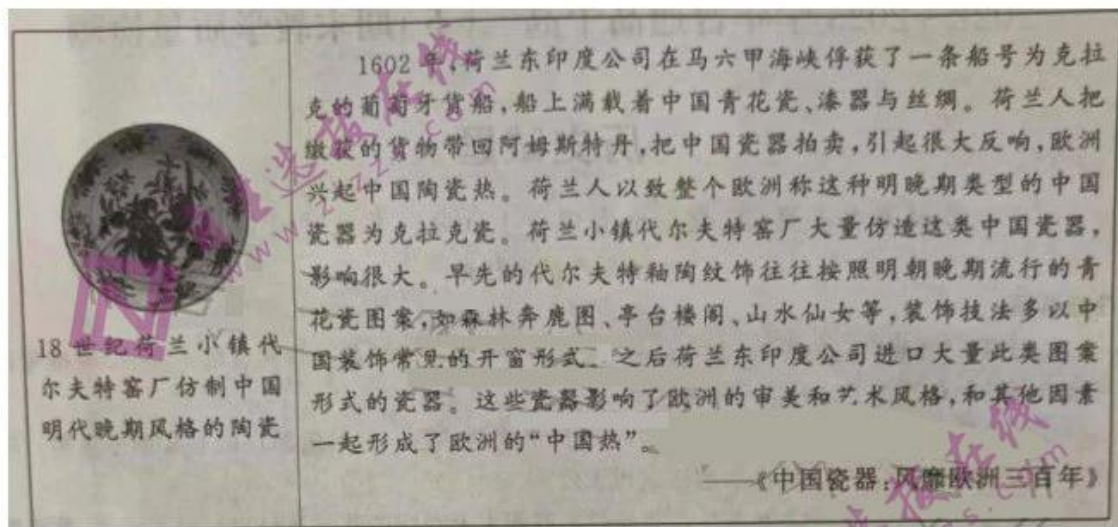 1602年,荷兰东印度公司在马六甲海峡俘获了一条船号为克拉
克的葡萄牙货船,船上满载着中国青花瓷、漆器与丝绸。荷兰人把
缴获的货物带回阿姆斯特丹,把中国瓷器拍卖,引起很大反响,欧洲
兴起中国陶瓷热。荷兰人以致整个欧洲称这种明晚期类型的中国
瓷器为克拉克瓷。荷兰小镇代尔夫特窑厂大量仿造这类中国瓷器,
影响很大。早先的代尔夫特釉陶纹饰往往按照明朝晚期流行的青
花瓷图案,如森林奔鹿图、亭台楼阁、山水仙女等,装饰技法多以中
国装饰常见的开窗形式。之后荷兰东印度公司进口大量此类图案
形式的瓷器。这些瓷器影响了欧洲的审美和艺术风格,和其他因素
一起形成了欧洲的“中国热”。
——《中国瓷器:风靡欧洲三百年》
18世纪荷兰小镇代
尔夫特窑厂仿制中国
明代晚期风格的陶瓷